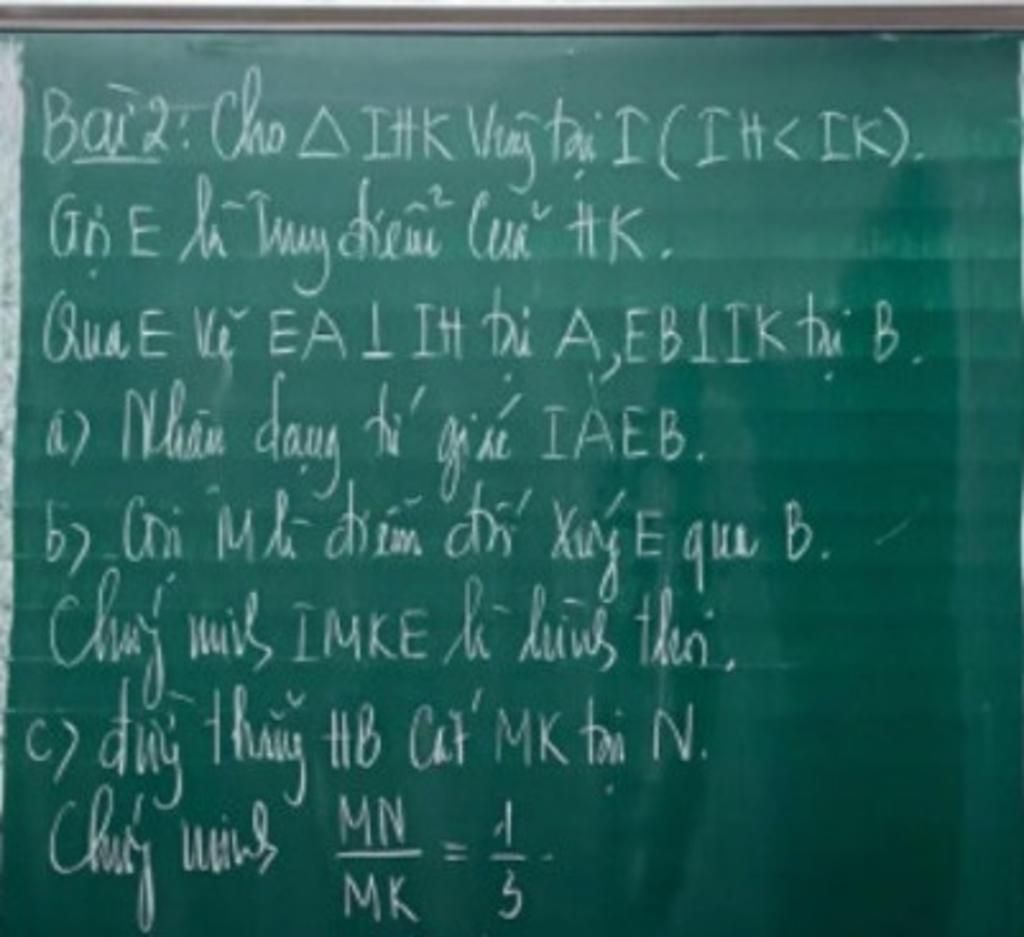 Bài 2: Cho △ IHK Vuông tại I (IH < IK).
Gọi E là Trung điểm của HK.
Qua E Vẽ EA ⊥ IH tại A, EB ⊥ IK tại B.
a) Nhận dạng tứ giác IAEB.
b) Gọi M là điểm đối xứng E qua B.
Chứng minh IMKE là hình thoi.
c) đường thẳng HB Cắt MK tại N.
Chứng minh MN/MK = 1/3.